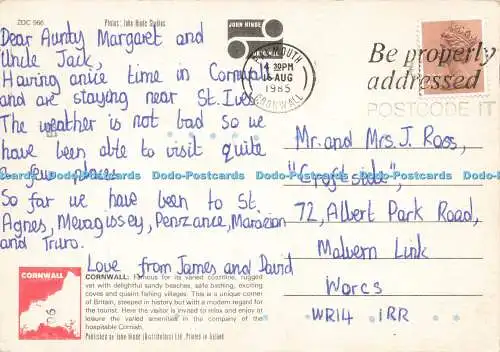 ZDC 966
Photos: John Hinde Studios
JOHN HINDE
ORIGINAL
Dear Aunty Margaret and
Uncle Jack,
Having a nice time in Cornwall
and are staying near St. Ives
The weather is not bad so we
have been able to visit quite
a few places
So far we have been to St.
Agnes, Mevagissey, Penzance, Marazion
and Truro.
Love from James and David
MOUTH
4 30PM
AUG
1985
CORNWALL
Be properly
addressed
POSTCODE IT
Mr. and Mrs. J. Ross,
"Croftside",
72, Albert Park Road,
Malvern Link
Worcs
WR14 1RR
CORNWALL
CORNWALL: Famous for its varied coastline, rugged
yet with delightful sandy beaches, safe bathing, exciting
coves and quaint fishing villages. This is a unique corner
of Britain, steeped in history but with a modern regard for
the tourist. Here the visitor is invited to relax and enjoy at
leisure the varied amenities in the company of the
hospitable Cornish.
Published by John Hinde (Distributors) Ltd. Printed in Ireland
Dodo-Postcards Dodo-Postcards Dodo-Postcards Dodo-Postcards